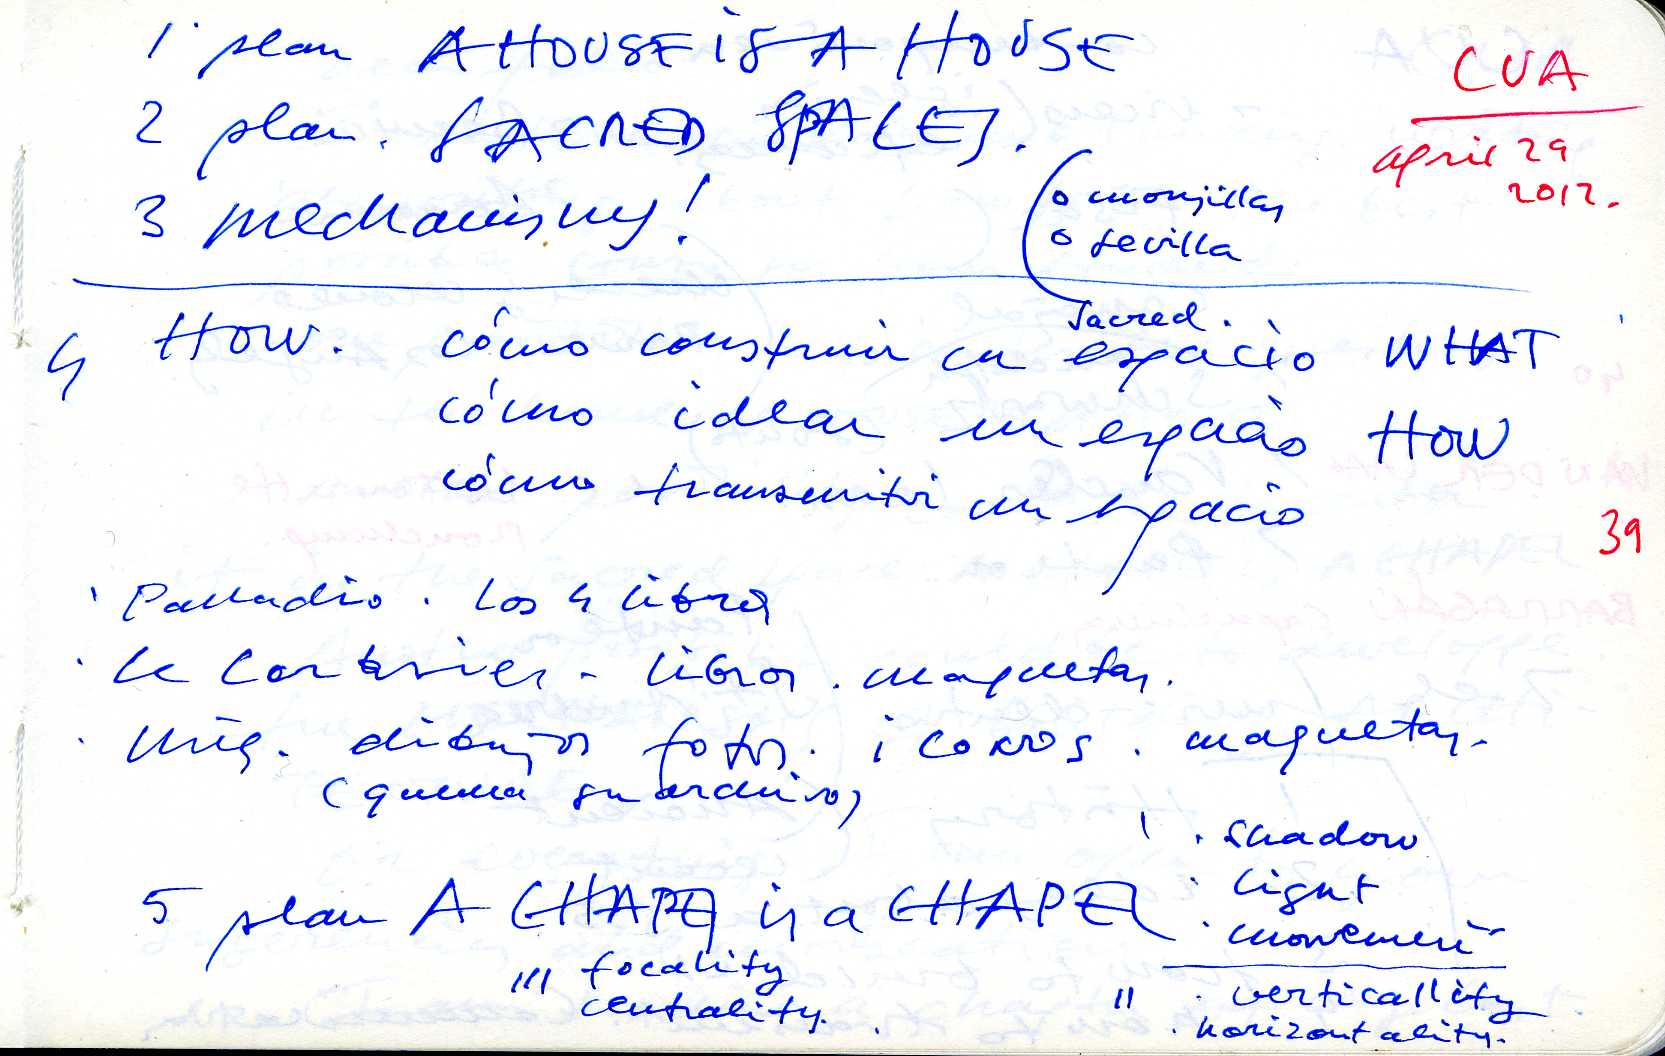 1 plan A HOUSE is A HOUSE
CUA
2 plan. SACRED SPACES.
april 29
2012.
3 mechanisms!
o monjillas
o sevilla
sacred.
4 HOW. cómo construir un espacio WHAT
cómo idear un espacio HOW
cómo transmitir un espacio
39
· Palladio. Los 4 libros
· Le Corbusier - libros. maquetas.
· Mies. dibujos fotos. iconos. maquetas.
(quema su archivo)
' · shadow
5 plan A CHAPEL is a CHAPEL · light
· movement
''' focality
centrality.
'' · verticallity
· horizontality.